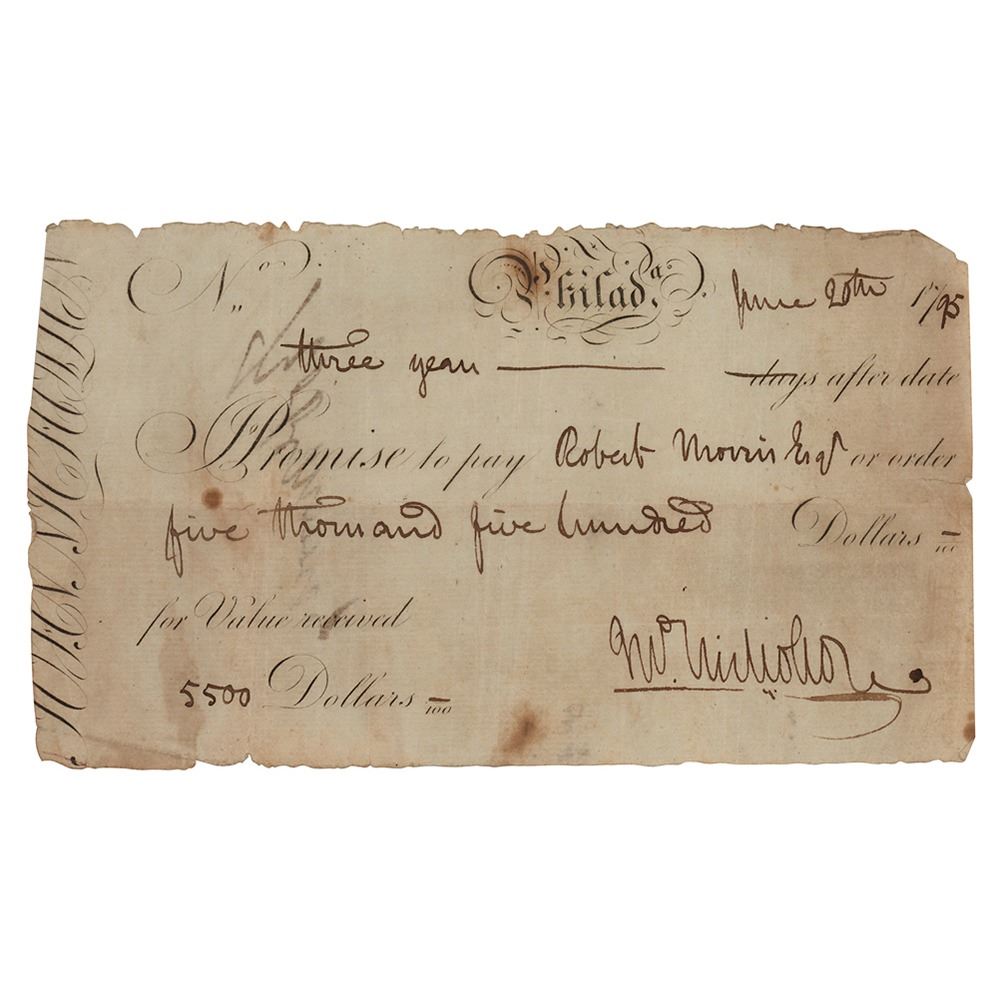 No. Philada. June 20th 1795
three years days after date
I Promise to pay Robert Morris Esqr or order
five thousand five hundred Dollars /100
for Value received
5500 Dollars /100
Jno. Nicholson